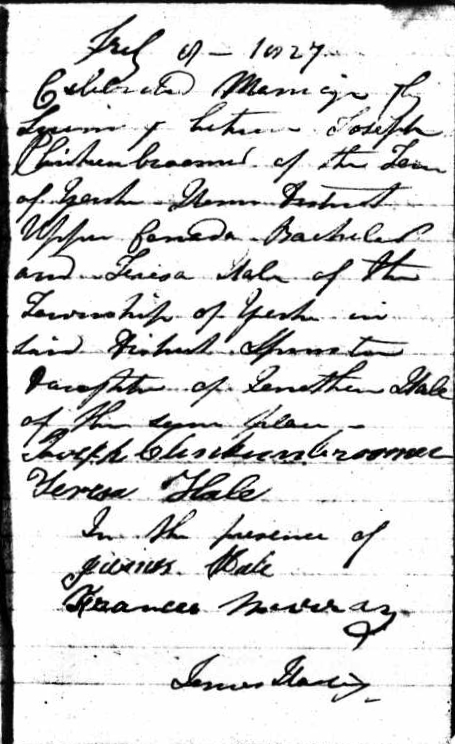 Feby 8 - 1827
Celebrated Marriage by
Licence between Joseph
Clinkunbroomer of the Town
of York Home District
Upper Canada Bachelor
and Teresa Hale of the
Township of York in
said District Spinster
Daughter of Jonathan Hale
of the same place -
Joseph Clinkunbroomer
Teresa Hale
In the presence of
James Hale
Frances Murray
James